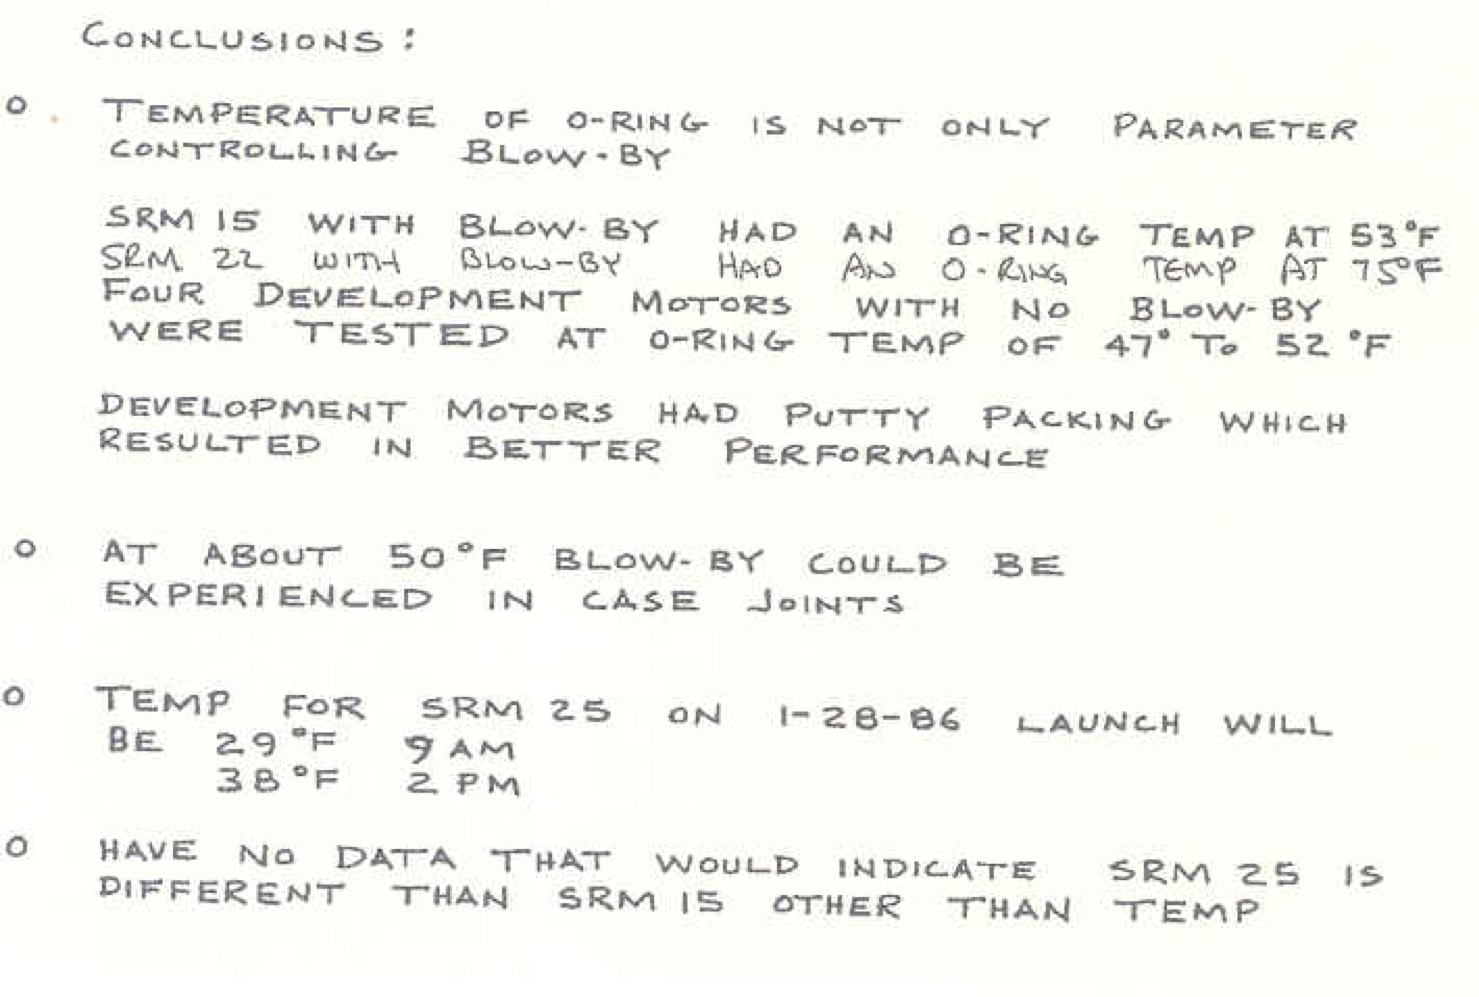 CONCLUSIONS:
o TEMPERATURE OF O-RING IS NOT ONLY PARAMETER
CONTROLLING BLOW-BY
SRM 15 WITH BLOW-BY HAD AN O-RING TEMP AT 53°F
SRM 22 WITH BLOW-BY HAD AN O-RING TEMP AT 75°F
FOUR DEVELOPMENT MOTORS WITH NO BLOW-BY
WERE TESTED AT O-RING TEMP OF 47° TO 52°F
DEVELOPMENT MOTORS HAD PUTTY PACKING WHICH
RESULTED IN BETTER PERFORMANCE
o AT ABOUT 50°F BLOW-BY COULD BE
EXPERIENCED IN CASE JOINTS
o TEMP FOR SRM 25 ON 1-28-86 LAUNCH WILL
BE 29°F 9 AM
38°F 2 PM
o HAVE NO DATA THAT WOULD INDICATE SRM 25 IS
DIFFERENT THAN SRM 15 OTHER THAN TEMP